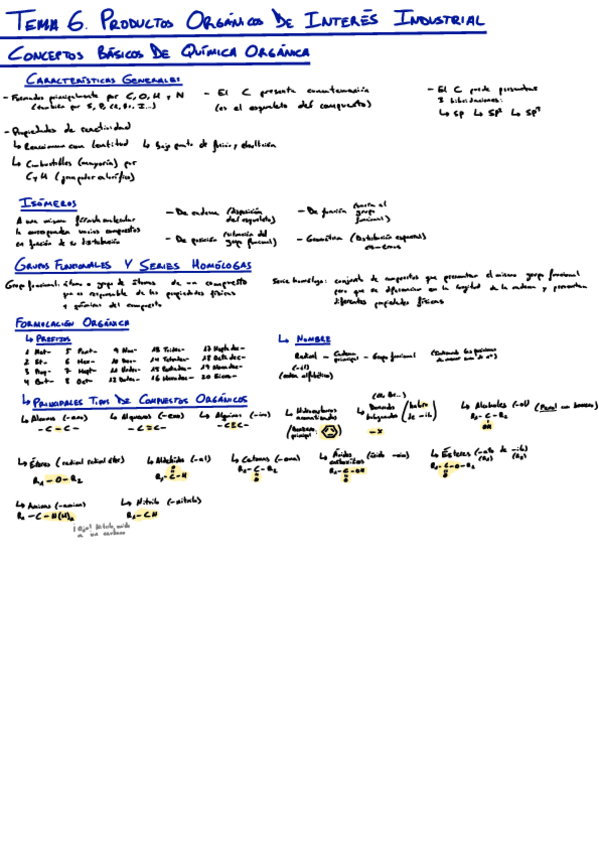 TEMA 6. PRODUCTOS ORGÁNICOS DE INTERÉS INDUSTRIAL
CONCEPTOS BÁSICOS DE QUÍMICA ORGÁNICA
CARACTERÍSTICAS GENERALES
- Formados principalmente por C, O, H y N
(también por S, P, Cl, Br, I...)
- El C presenta concatenación
(es el esqueleto del compuesto)
- El C puede presentar
3 hibridaciones:
↳ sp ↳ sp² ↳ sp³
- Propiedades de reactividad
↳ Reaccionan con lentitud ↳ Bajo punto de fusión y ebullición
↳ Combustibles (mayoría) por
C y H (gran poder calorífico)
ISÓMEROS
A una misma fórmula molecular
le corresponden varios compuestos
en función de su distribución
- De cadena (Disposición
del esqueleto)
- De posición (situación del
grupo funcional)
- De función (varía el
grupo
funcional)
- Geométrica (Distribución espacial)
cis-trans
GRUPOS FUNCIONALES Y SERIES HOMÓLOGAS
Grupo funcional: átomo o grupo de átomos de un compuesto
que es responsable de las propiedades físicas
y químicas del compuesto
Serie homóloga: conjunto de compuestos que presentan el mismo grupo funcional
pero que se diferencian en la longitud de la cadena y presentan
diferentes propiedades físicas
FORMULACIÓN ORGÁNICA
↳ PREFIJOS
1 Met- 5 Pent- 9 Non- 13 Tridec- 17 Heptadec-
2 Et- 6 Hex- 10 Dec- 14 Tetradec- 18 Octadec-
3 Prop- 7 Hept- 11 Undec- 15 Pentadec- 19 Nonadec-
4 But- 8 Oct- 12 Dodec- 16 Hexadec- 20 Eicos-
↳ NOMBRE
Radical - Cadena principal - Grupo funcional
(-il)
(orden alfabético)
↳ PRINCIPALES TIPOS DE COMPUESTOS ORGÁNICOS
↳ Alcanos (-ano)
- C - C -
↳ Alquenos (-eno)
- C = C -
↳ Alquinos (-ino)
- C ≡ C -
↳ Hidrocarburos
aromáticos
(Benceno,
principal)
↳ Derivado
halogenado
- X
↳ Alcoholes (-ol)
R₁ - C - R₂
OH
↳ Éteres (radical radical éter)
R₁ - O - R₂
↳ Aldehídos (-al)
O
R₁ - C - H
↳ Cetonas (-ona)
R₁ - C - R₂
O
↳ Ácidos
carboxílicos (ácido -oico)
R₁ - C - OH
O
↳ Ésteres (-ato de -ilo)
(R₁) (R₂)
R₁ - C - O - R₂
O
↳ Aminas (-amina)
R₁ - C - N(H)₂
↳ Nitrilo (-nitrilo)
R₁ - C N
¡Ojo!
a un carbono